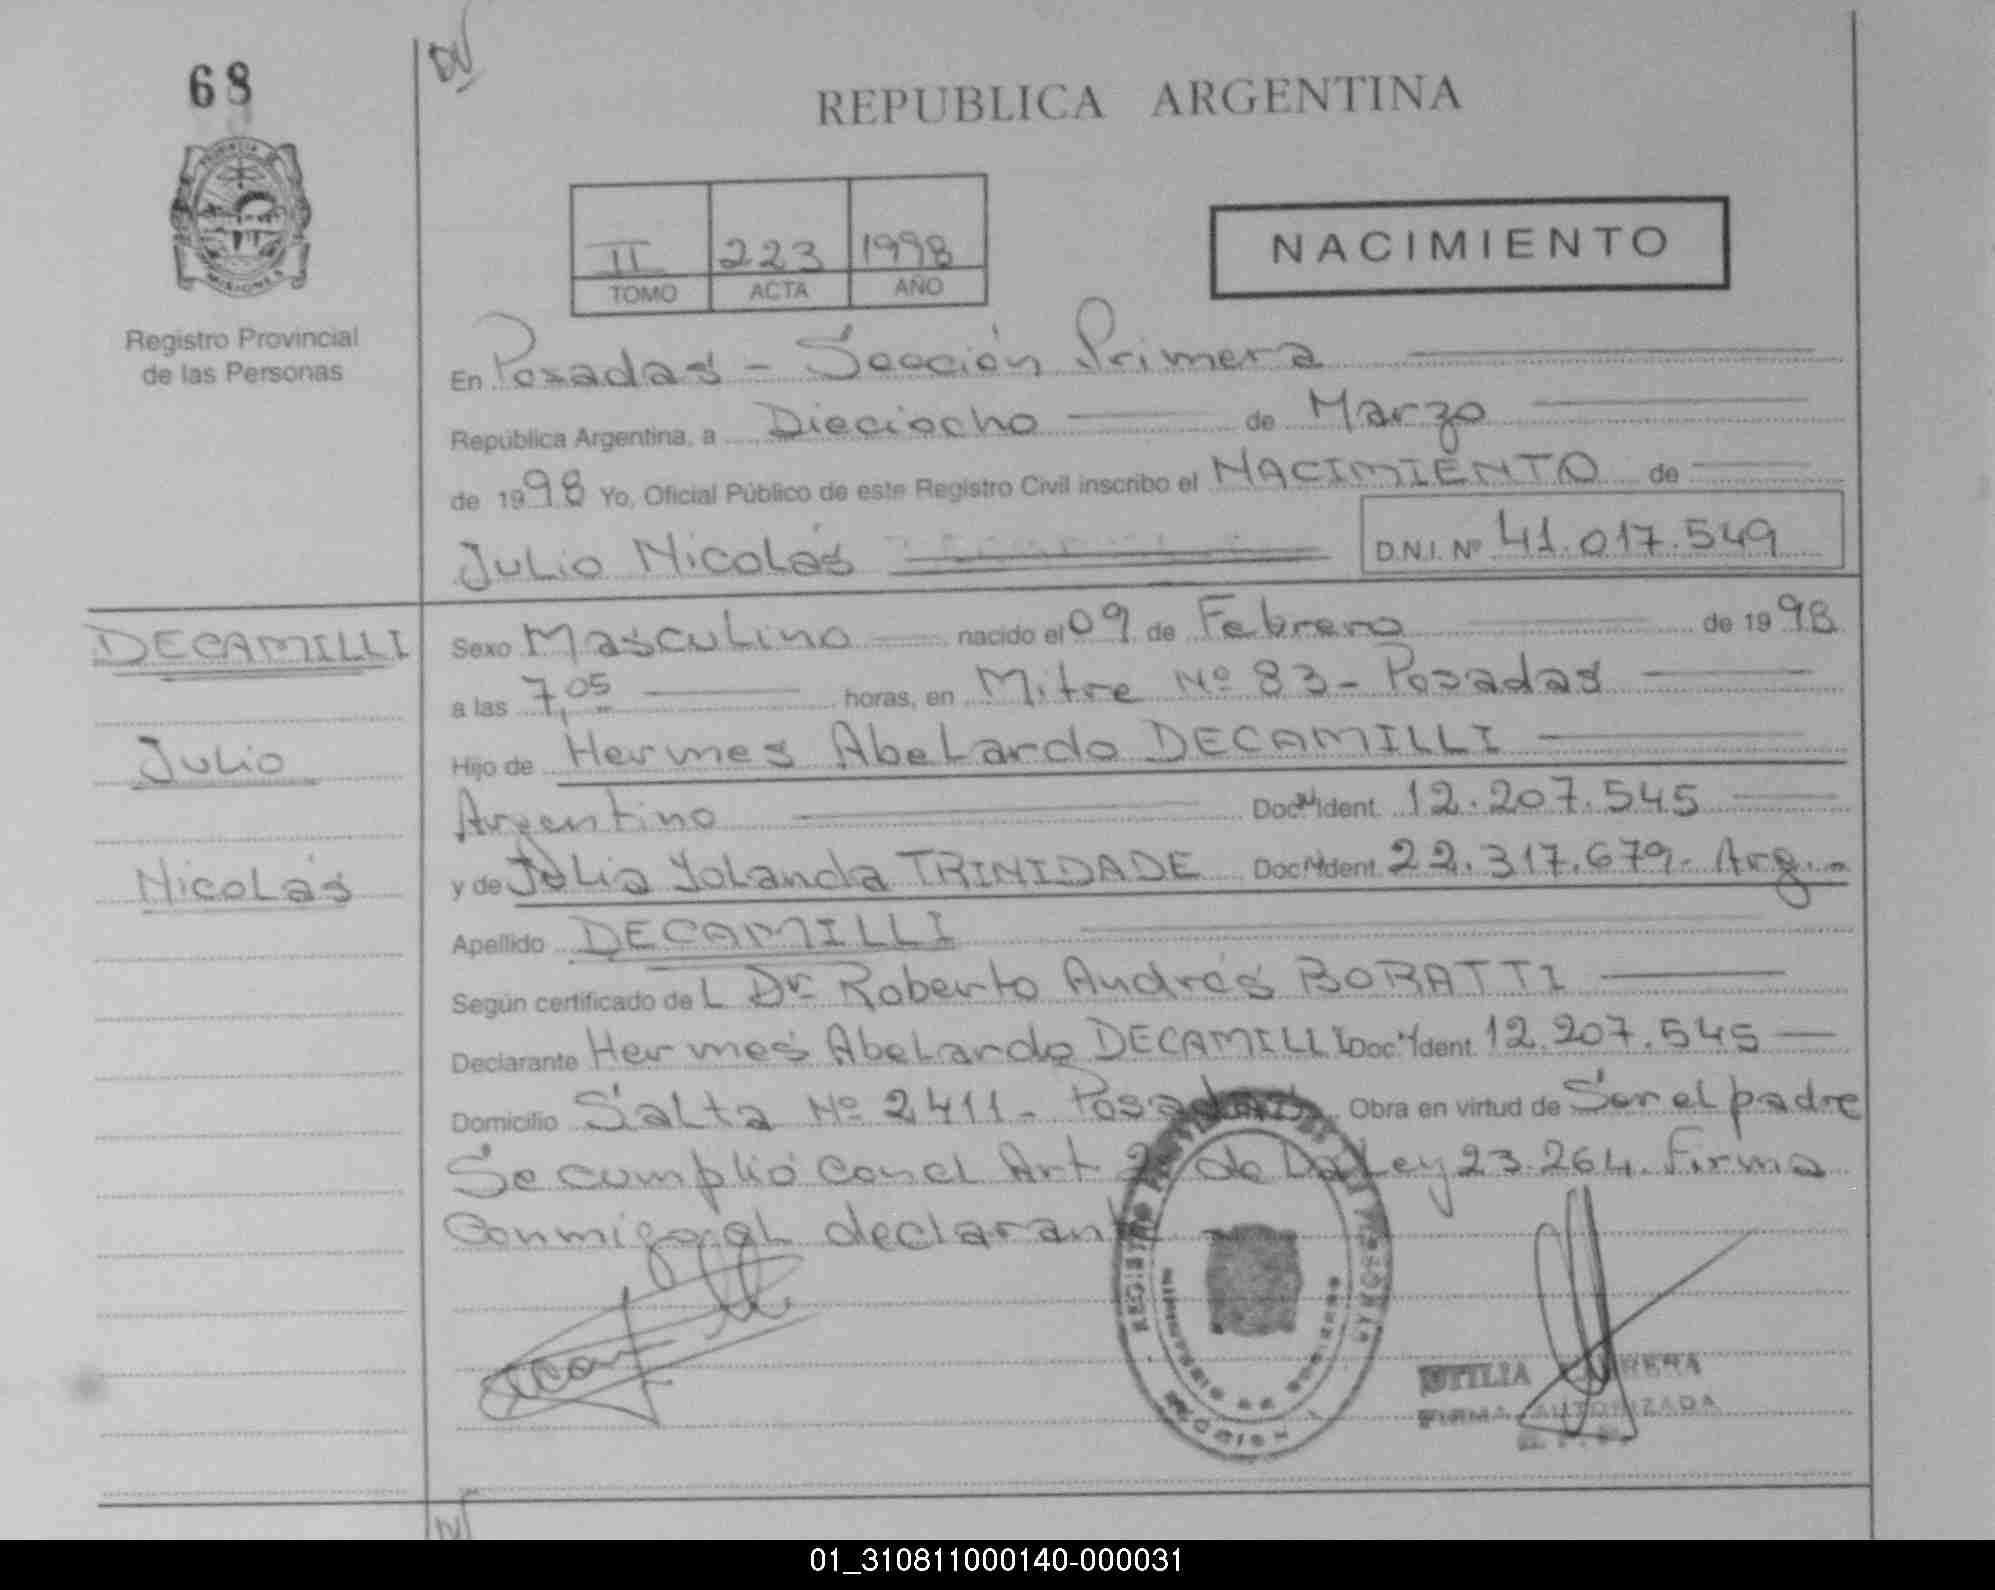 68
REPUBLICA ARGENTINA
II 223 1998
TOMO ACTA AÑO
NACIMIENTO
Registro Provincial
de las Personas
En Posadas - Sección Primera
República Argentina, a Dieciocho de Marzo
de 1998 Yo, Oficial Público de este Registro Civil inscribo el NACIMIENTO de
Julio Nicolás D.N.I. Nº 41.017.549
DECAMILLI
Julio
Nicolás
Sexo Masculino nacido el 09 de Febrero de 1998
a las 7,05 horas, en Mitre Nº 83 - Posadas
Hijo de Hermes Abelardo DECAMILLI
Argentino Doc. Ident. 12.207.545
y de Julia Yolanda TRINIDADE Doc. Ident. 22.317.679.- Arg.-
Apellido DECAMILLI
Según certificado del Dr. Roberto Andrés BORATTI
Declarante Hermes Abelardo DECAMILLI Doc. Ident. 12.207.545
Domicilio Salta Nº 2411 - Posadas Obra en virtud de Ser el padre
Se cumplió con el Art 2 de La Ley 23.264. Firma
Conmigo el declarante
REGISTRO PROVINCIAL DE LAS PERSONAS
MINISTERIO DE GOBIERNO
MISIONES
FIRMA AUTORIZADA
01_310811000140-000031